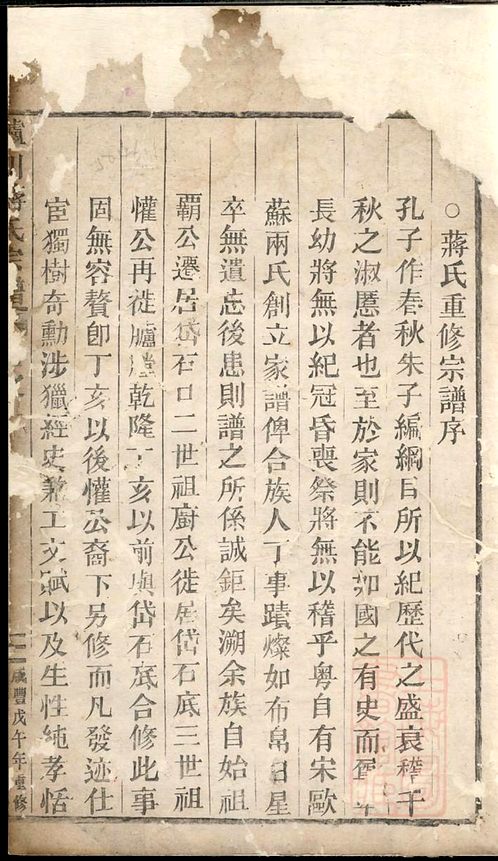 ○蔣氏重修宗譜序
孔子作春秋朱子編綱目所以紀歷代之盛衰稽千
秋之淑慝者也至於家則不能如國之有史而
長幼將無以紀冠昏喪祭將無以稽乎粤自有宋歐
蘇兩氏創立家譜俾合族人丁事蹟燦如布帛日星
卒無遺忘後患則譜之所係誠鉅矣溯余族自始祖
覇公遷居岱石口二世祖廚公徙居岱石底三世祖
懽公再徙臚澧乾隆丁亥以前與岱石底合修此事
固無容贅卽丁亥以後懽公裔下另修而凡發迹仕
宦獨樹奇勳涉獵經史兼工文賦以及生性純孝恬
川蔣氏宗譜
一
咸豐戊午年重修